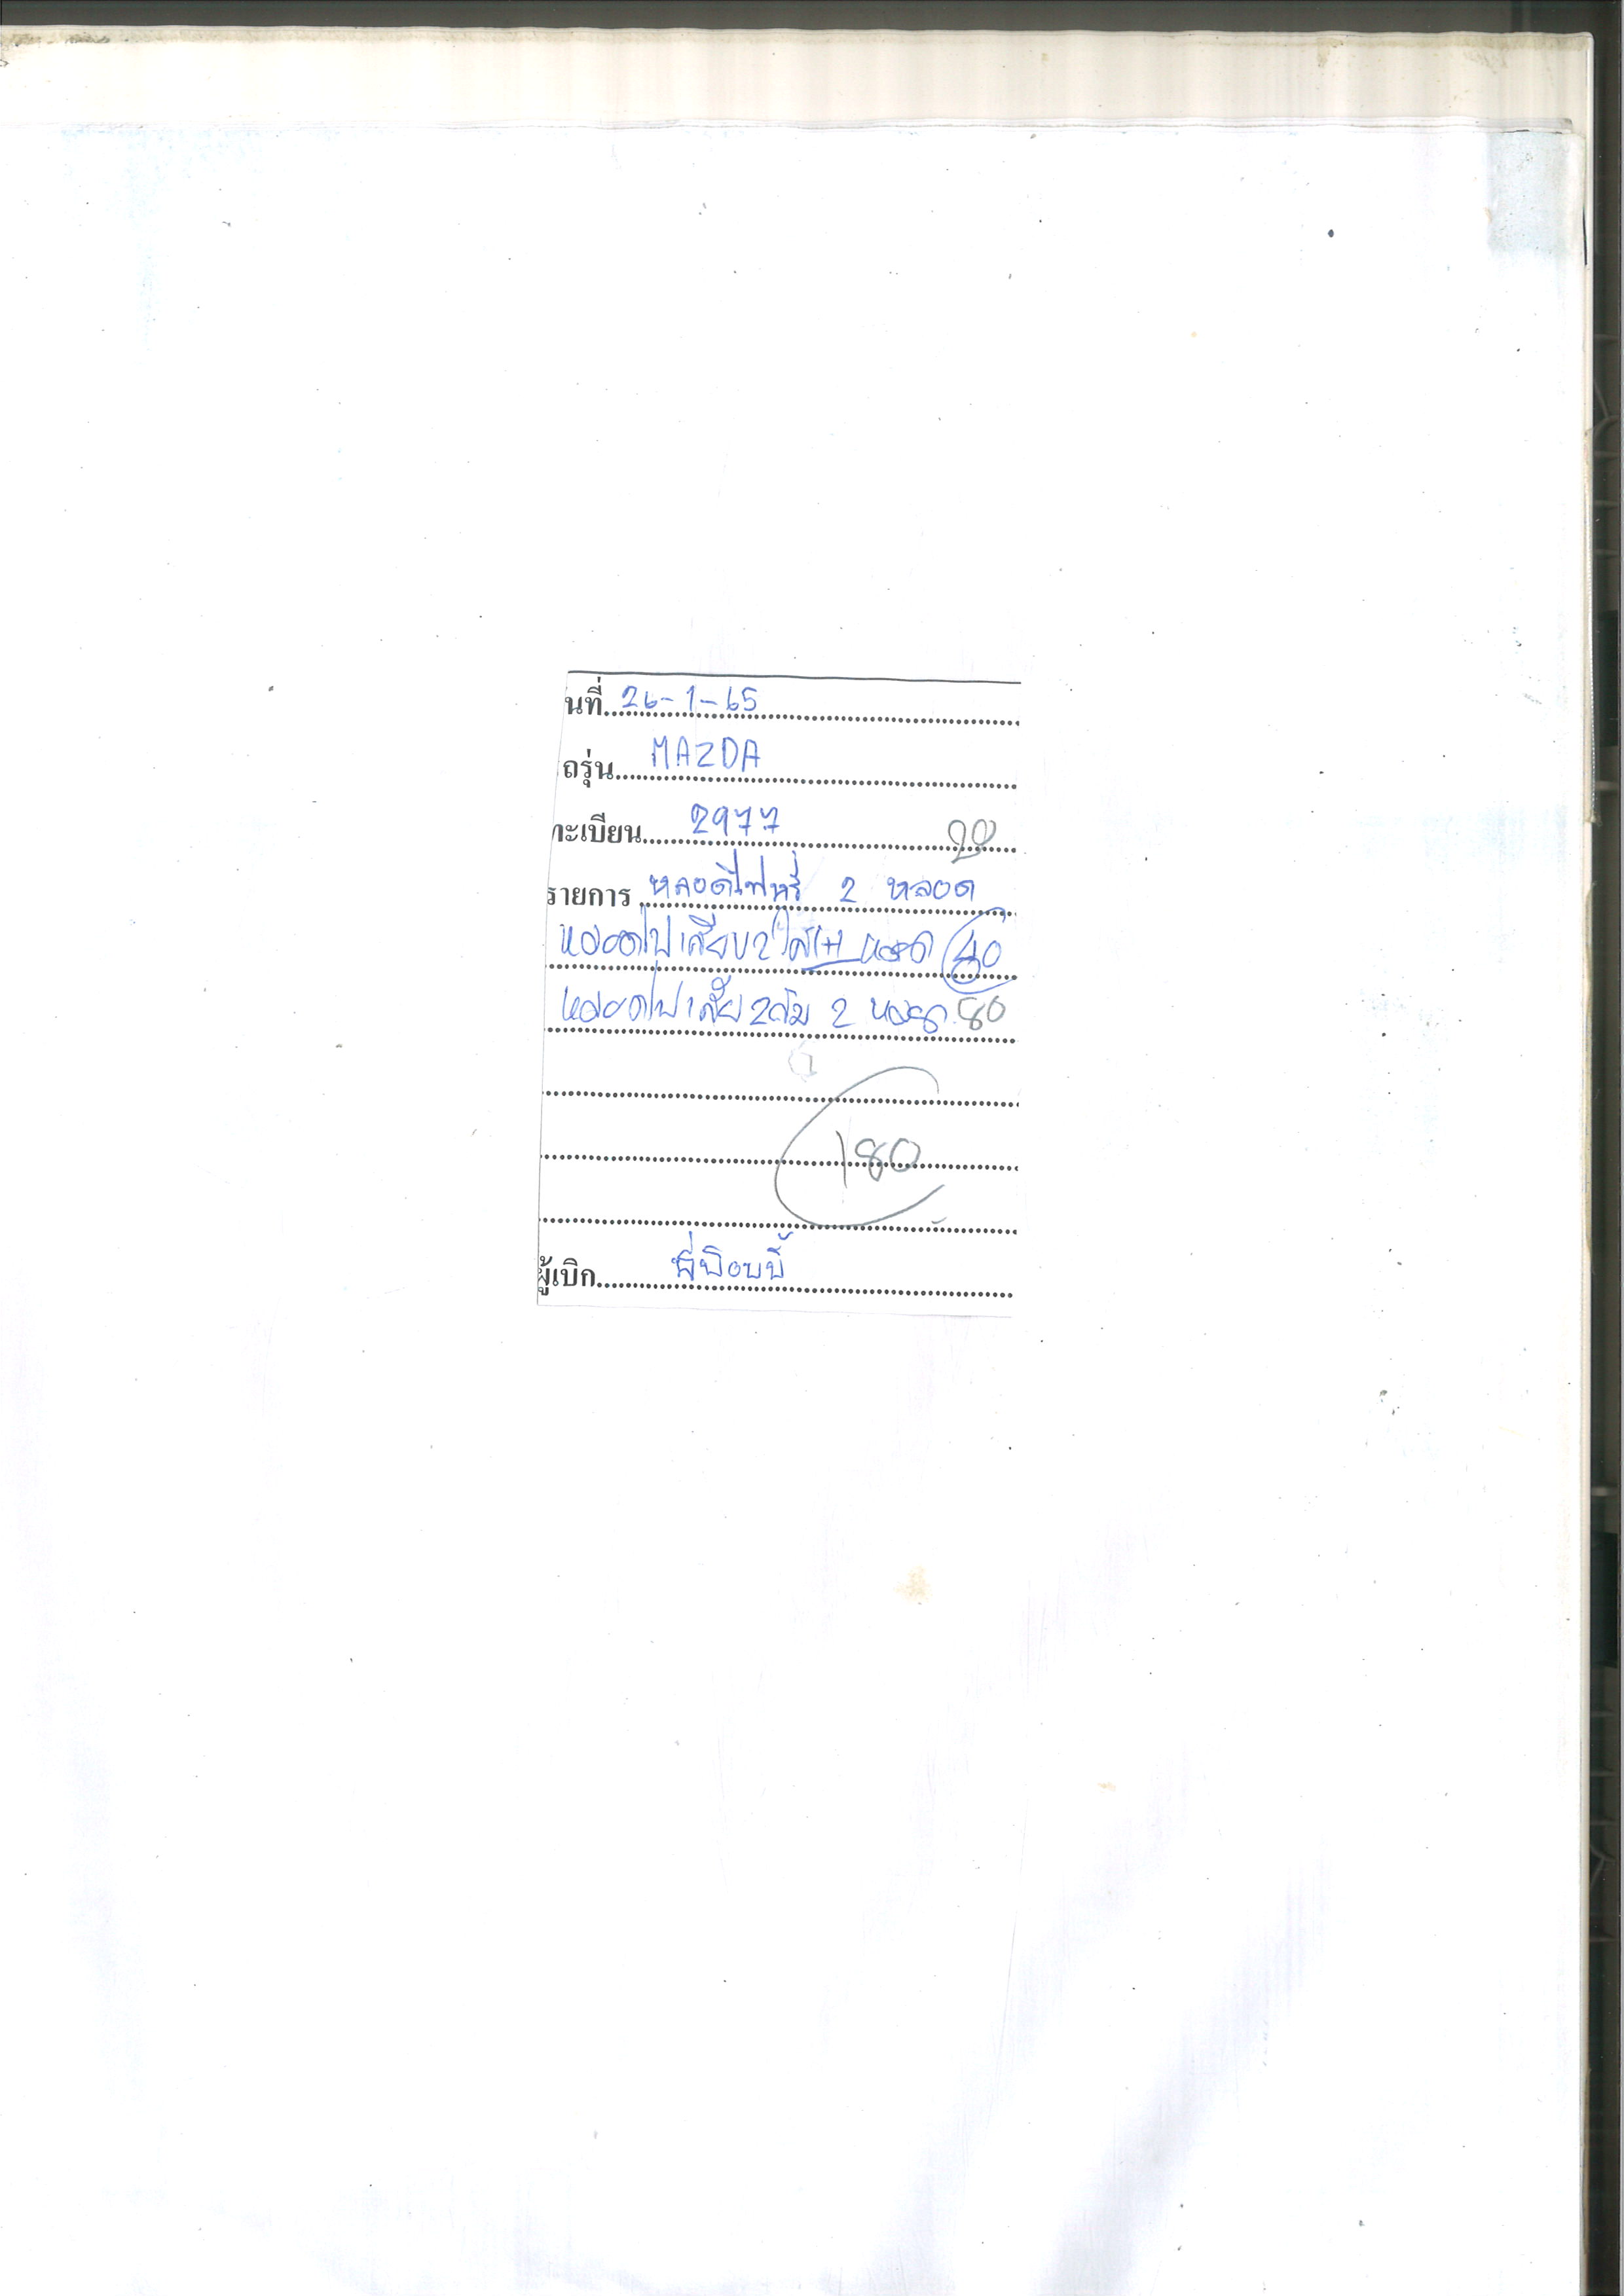 นที่ 26-1-65
ถรุ่น MAZDA
ทะเบียน 2977
20
รายการ หลอดไฟหรี่ 2 หลอด
หลอดไฟเสียบ 2 หลอด 40
หลอดไฟเสียบ 2 2 หลอด 80
180
ผู้เบิก พี่